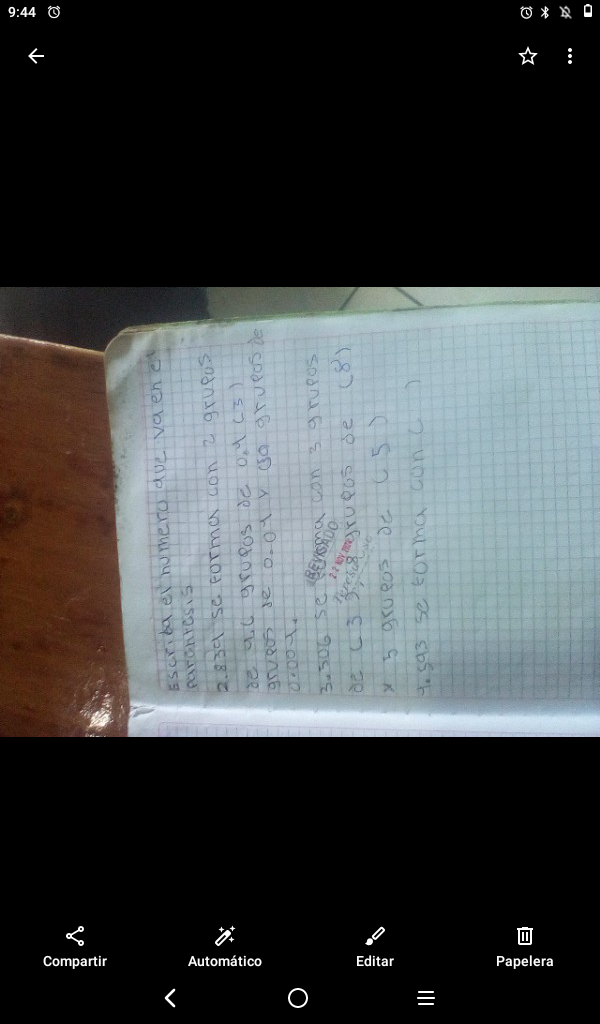 9:44
Escriba el numero que va en el
parentesis
2.839 se forma con 2 grupos
de grupos de 0.1 (3)
grupos de 0.01 y grupos de
0.001.
3.506 se forma con 3 grupos
REVISADO
de (3 grupos de (8)
x 3 grupos de (5)
4.593 se forma con ( )
Compartir
Automático
Editar
Papelera